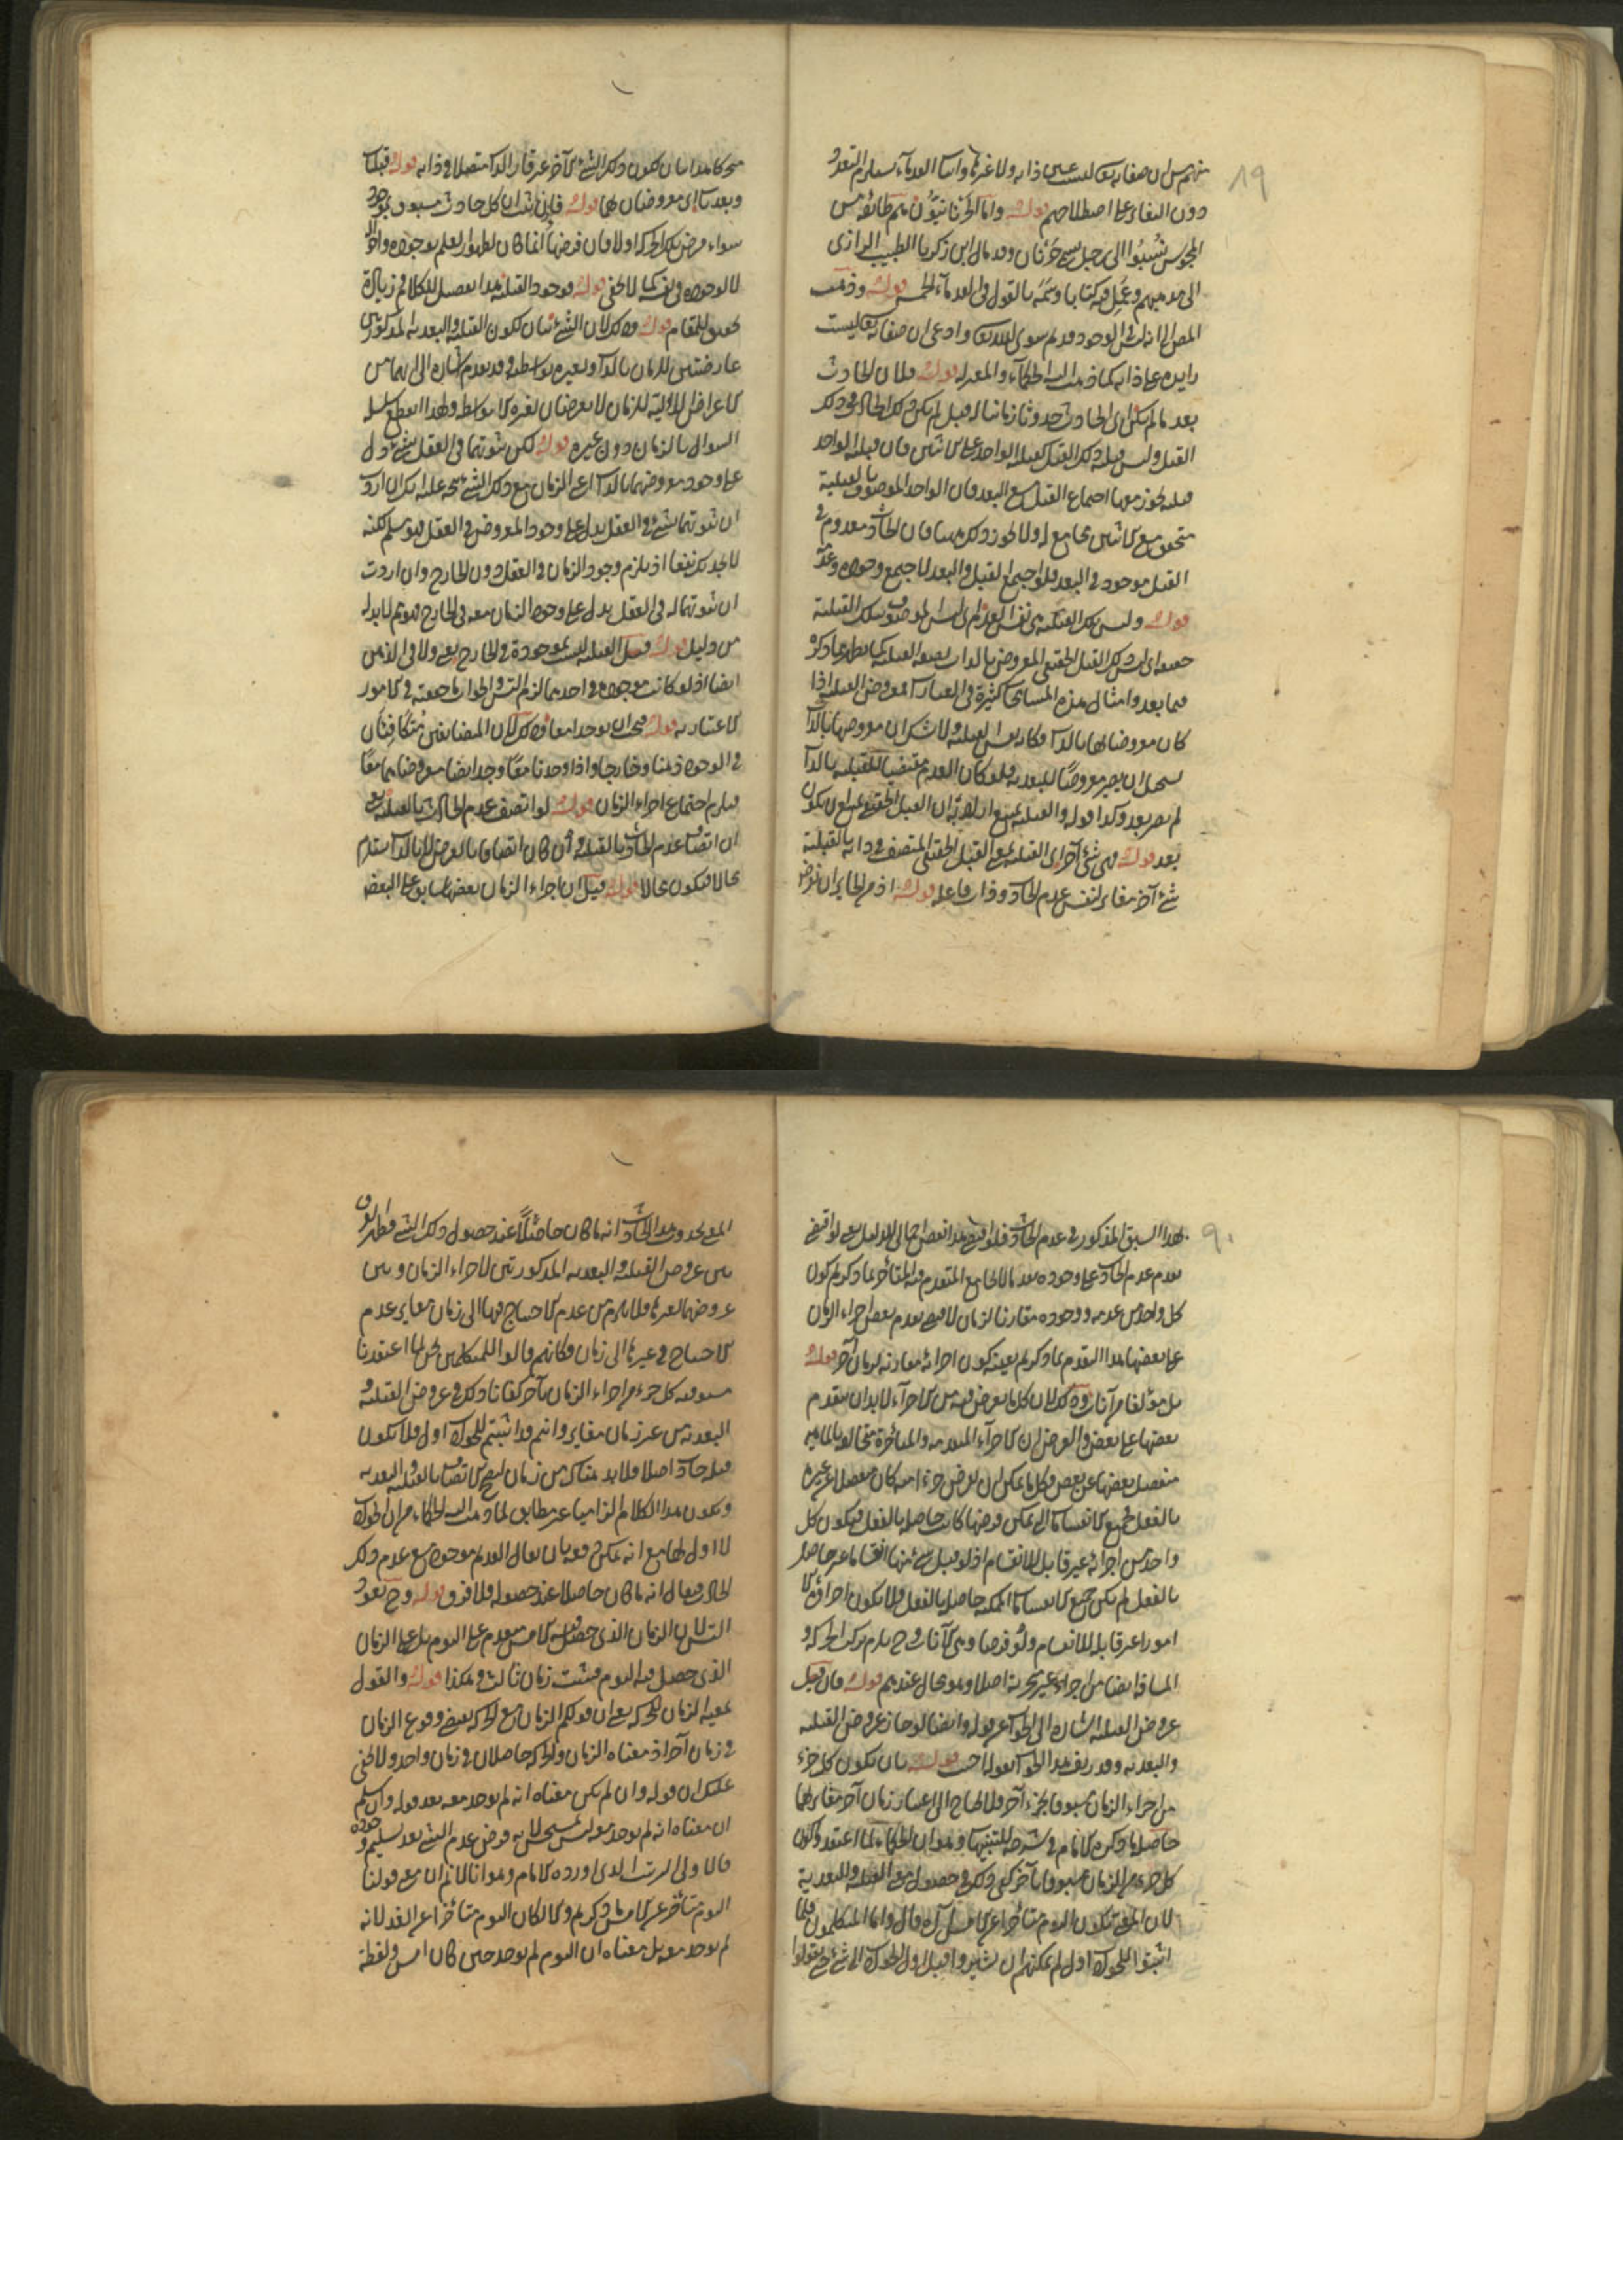 ١٩
منهم من ان صفاته تعالى ليست عين ذاته ولا غيرها واثبات القدماء يستلزم التعدد
دون التغاير على اصطلاحهم قوله واما الحرنانيون هم طائفة من
المجوس نسبوا الى رجل يسمى حرنان وقد مال ابن زكريا الطبيب الرازى
الى مذهبهم وعمل فيه كتابا وسمه بالقول فى القدماء الخمسة قوله وذهب
المص الى انه ليس فى الوجود قديم سوى الله تعالى وادعى ان صفاته تعالى ليست
زايدة على ذاته كما ذهب اليه الحكماء والمعتزلة قوله فلان الحادث
بعد ما لم يكن اى الحادث حدوثا زمانيا له قبل لم يكن ذلك الحادث فى ذلك
القبل وليس قبلية ذلك القبل كقبلية الواحد على الاثنين فان قبلية الواحد
قبلية يجوز معها اجتماع القبل مع البعد فان الواحد الموصوف بالقبلية
متحقق مع الاثنين مجامع له ولا يجوز ذلك ههنا فان الحادث معدوم فى
القبل موجود فى البعد فلو اجتمع القبل والبعد لاجتمع وجوده وعدمه
قوله وليس تلك القبلية هى نفس العدم اى ليس الموصوف بتلك القبلية
حقيقة اى ليس ذلك القبل الحقيقى المعروض بالذات لصفة القبلية كما يظهر مما ذكره
فيما بعد وامثال هذه المسامحات كثيرة فى العبارات معروض القبلية اذا
كان معروضا لها بالذات فكانه نفس القبلية ولا شك ان معروضها بالذات
يستحيل ان يصير معروضا للبعدية فلو كان العدم مقتضيا للقبلية بالذات
لم يصر بعد وكذا قوله والقبلية يمتنع ان اراد به ان القبل الحقيقى يمتنع ان يكون
بعد قوله فهى شئ آخر اى القبلية بمعنى القبل الحقيقى المتصف فى ذاته بالقبلية
شئ آخر مغاير لنفس عدم الحادث وذات فاعله قوله اذ من الجايز ان نفرض
متحركا مدا بان يكون ذلك الشئ الآخر غير قار الذات متصلا فى ذاته قوله قبليات
وبعديات اى معروضان لها قوله فاذن ثبت ان كل حادث مسبوق بموجود
سواء فرض تلك الحركة او لا فان فرضها انما كان لظهور العلم بوجوده واحواله
لا لوجوده فى نفسه كما لا يخفى قوله فوجود القبلية هذا تفصيل للكلام فيه زيادة
تحقيق للمقام قوله وذلك لان الشئ بيان لكون القبلية والبعدية المذكورتين
عارضتين للزمان بالذات ولغيره بواسطته وقد تقدم اشارة الى انهما من
الاعراض الاولية للزمان لا يعرضان لغيره الا بواسطته ولهذا انقطع سلسلة
السؤال بالزمان دون غيره قوله لكن ثبوتهما فى العقل لشئ يدل
على وجود معروضهما بالذات اى الزمان مع ذلك الشئ يتجه عليه انك ان اردت
ان ثبوتهما لشئ فى العقل يدل على وجود المعروض فى العقل فهو مسلم لكنه
لا يجديك نفعا اذ يلزم وجود الزمان فى العقل دون الخارج وان اردت
ان ثبوتهما له فى العقل يدل على وجود الزمان معه فى الخارج فهو ثم لا بد له
من دليل قوله وقبل القبلية ليست بموجودة فى الخارج يعنى ولا فى الذهن
ايضا اذ لو كانت موجودة فى احدهما لزم التس والجواب ما حققته فى الامور
الاعتبارية قوله فيجب ان يوجدا معا وذلك لان المتضايفين متكافيان
فى الوجود ذهنا وخارجا واذا وجدنا معا وجد ايضا معروضاهما معا
فيلزم اجتماع اجزاء الزمان قوله لو اتصف عدم الحادث بالقبلية يعنى
ان اتصاف عدم الحادث بالقبلية وان كان اتصافا بالعرض لا بالذات يستلزم
محالا فيكون محالا قوله قيل ان اجزاء الزمان بعضها سابق على البعض
٩٠
بهذا السبق المذكور فى عدم الحادث فلو اقتضى هذا نقض اجمالى للدليل يعنى لو اقتضى
تقدم عدم الحادث على وجوده تقدما لا يجامع المتقدم فيه المتأخر بما ذكرتم كون
كل واحد من عدمه ووجوده مقارنا لزمان لاقتضى تقدم بعض اجزاء الزمان
على بعضها هذا التقدم بما ذكرتم بعينه كون اجزائه مقارنة لزمان آخر قوله
بل مؤلفا من آنات وذلك لان كل ما يفرض فيه من الاجزاء لابد ان يتقدم
بعضها على بعض والفرض ان الاجزاء المتقدمة والمتأخرة متخالفة بالماهية
منفصل بعضها عن بعض وكل ما يمكن ان يفرض جزءا منه كان منفصلا عن غيره
بالفعل فجميع الانقسامات التى يمكن فرضها كانت حاصلة بالفعل فيكون كل
واحد من اجزائه غير قابل للانقسام اذ لو قبل شئ منها انقساما غير حاصل
بالفعل لم يكن جميع الانقسامات الممكنة حاصلة بالفعل فلا يكون اجزاؤه الا
امورا غير قابلة للانقسام ولو فرضا وهى الآنات وح يلزم تركب الحركة و
المسافة ايضا من اجزاء غير متجزية اصلا وهو محال عندهم قوله فان قيل
عروض القبلية اشارة الى الجواب عن قوله وايضا لو جاز عروض القبلية
والبعدية وقد زيف هذا الجواب بقوله اجيب قوله بان يكون كل جزء
من اجزاء الزمان مسبوقا بجزء آخر فلا يحتاج الى اعتبار زمان آخر مغاير لهما
حاصل ما ذكره الامام فى شرحه للتنبيهات وهو ان الحكماء لما اعتقدوا كون
كل جزء من الزمان مسبوقا بآخر كفى ذلك فى حصول معنى القبلية والبعدية
لان المعنى بكون اليوم متأخرا عن الامس آه قال واما المتكلمون فلما
اثبتوا للحوادث اول لم يمكنهم ان يشيروا قبل اول الحوادث الى شئ حتى يقولوا
المعنى بحدوث هذا الحادث انه ما كان حاصلا عند حصول ذلك الشئ فظهر الفرق
بين عروض القبلية والبعدية المذكورتين لاجزاء الزمان وبين
عروضهما لغيرها فلا يلزم من عدم الاحتياج فيها الى زمان مغاير عدم
الاحتياج فى غيرها الى زمان فكانهم قالوا للمتكلمين نحن لما اعتقدنا
مسبوقية كل جزء من اجزاء الزمان بآخر كفانا ذلك فى عروض القبلية و
البعدية من غير زمان مغاير وانتم قد اثبتم للحوادث اول فلا يكون
قبله حادث اصلا فلا بد هناك من زمان ليصح الاتصاف بالقبلية والبعدية
ويكون هذا الكلام الزاميا غير مطابق لما ذهب اليه الحكماء من ان الحوادث
لا اول لها مع انه يمكن دفعه بان يقال القديم موجود مع عدم ذلك
الحادث فيقال انه ما كان حاصلا عند حصوله فلا فرق قوله وح يعود
التس لان الزمان الذى حصل فيه الامس متقدم على اليوم بل على الزمان
الذى حصل فيه اليوم فيثبت زمان ثالث وهكذا قوله والقول
بمعية الزمان للحركة يعنى ان قولكم الزمان مع الحركة يقتضى وقوع الزمان
فى زمان آخر اذ معناه الزمان والحركة حاصلان فى زمان واحد ولا يخفى
عليك ان قوله وان لم يكن معناه انه لم يوجد معه بعد قوله وان سلم
ان معناه انه لم يوجد معه ليس بمستحسن لانه فرض عدم الشئ بعد تسليم وجوده
فالاولى الترتيب الذى اورده الامام وهو انا لا نم ان معنى قولنا
اليوم متأخر عن الامس ما ذكرتم والا لكان اليوم متأخرا عن الغد لانه
لم يوجد معه بل معناه ان اليوم لم يوجد حين كان امس ولفظة